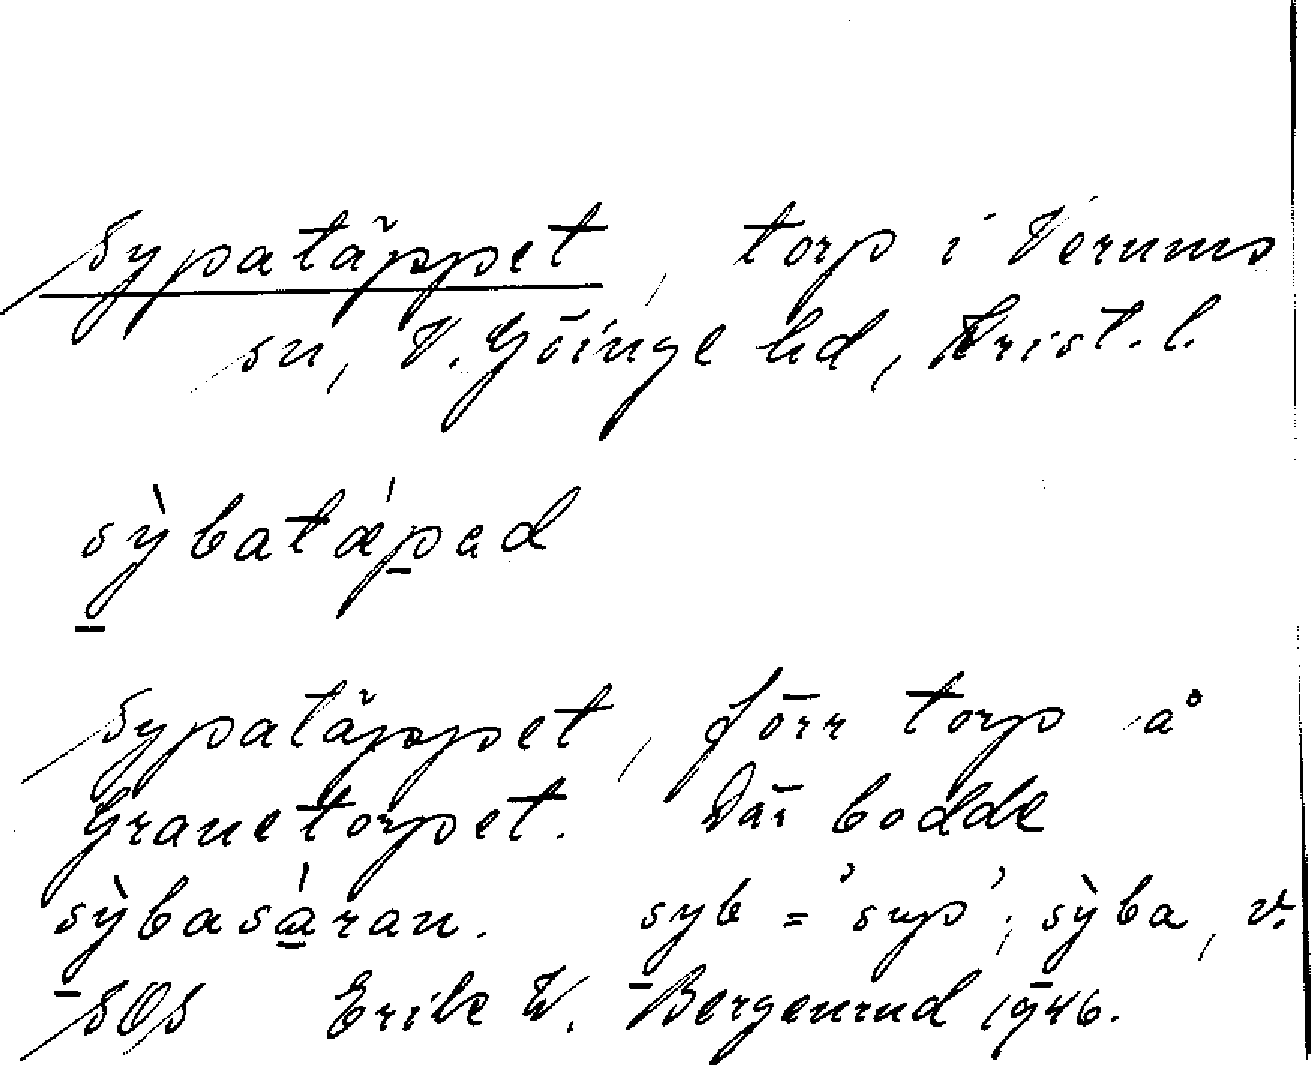 Sypatäppet, torp i Verums
sn, V. Göinge hd, Krist. l.
sỳ̠batǽp̠ad
Sypatäppet, förr torp å
Granetorpet. Där bodde
sỳ̠basá̳ran. sy̠b = 'sup'; sỳ̠ba, v.
SOS Erik W. Bergenrud 1946.